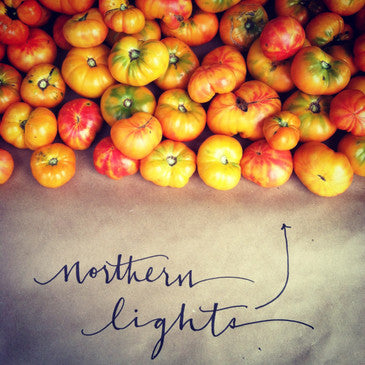 northern
lights